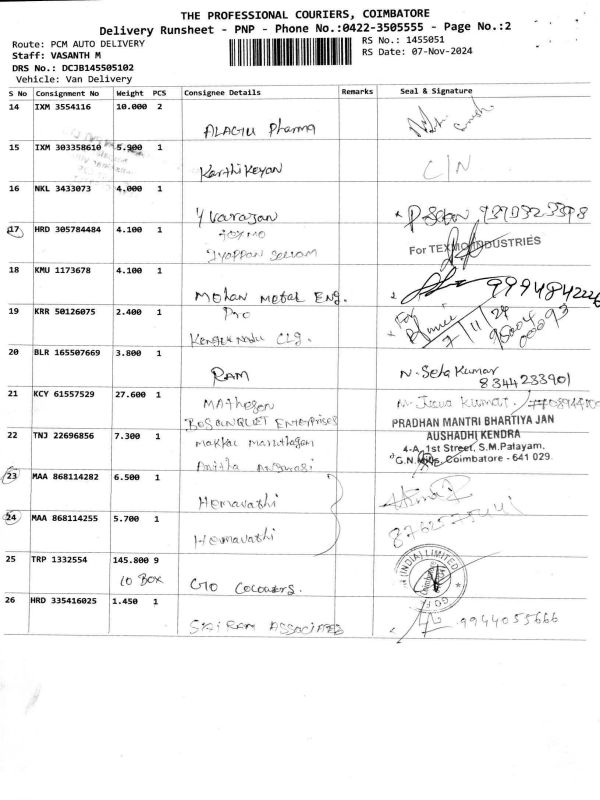 THE PROFESSIONAL COURIERS, COIMBATORE
Delivery Runsheet - PNP - Phone No.:0422-3505555 - Page No.:2
Route: PCM AUTO DELIVERY
RS No.: 1455051
Staff: VASANTH M
RS Date: 07-Nov-2024
DRS No.: DCJB145505102
Vehicle: Van Delivery
S No Consignment No Weight PCS Consignee Details Remarks Seal & Signature
14 IXM 3554116 10.000 2
Pharma
15 IXM 303358610 5.900 1
Karthikeyan C/N
16 NKL 3433073 4.000 1
Yuvarajan
17 HRD 305784484 4.100 1
For TEXMO INDUSTRIES
18 KMU 1173678 4.100 1
Mohan Metal Eng.
19 KRR 50126075 2.400 1
Pro
For
7/11/24
Clg.
20 BLR 165507669 3.800 1
RAM
8344233901
21 KCY 61557529 27.600 1
BOSANQUET ENTERPRISES
PRADHAN MANTRI BHARTIYA JAN
AUSHADHI KENDRA
22 TNJ 22696856 7.300 1
Makkal Marunthagam
4-A, 1st Street, S.M.Palayam,
G.N. Coimbatore - 641 029.
23 MAA 868114282 6.500 1
Hemavathi
24 MAA 868114255 5.700 1
Hemavathi
25 TRP 1332554 145.800 9
10 BOX
(INDIA) LIMITED
26 HRD 335416025 1.450 1
SRI RAM ASSOCIATES 9944055666